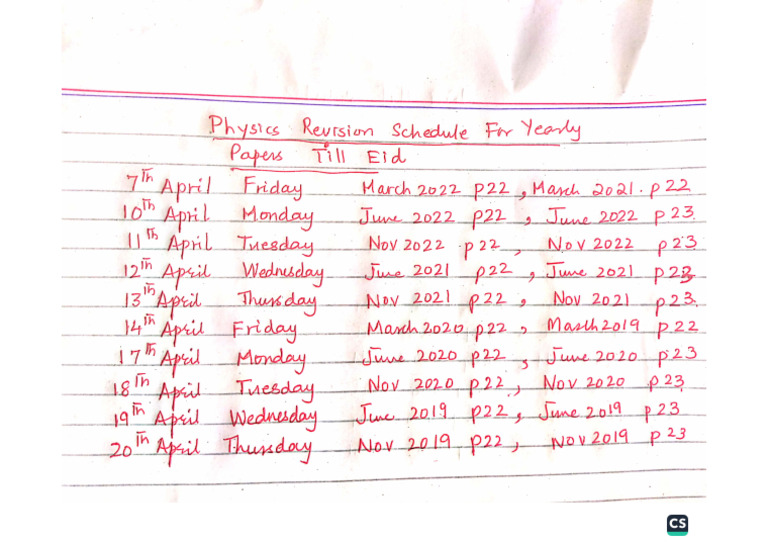 Physics Revision Schedule For Yearly
Papers Till Eid
7th April Friday March 2022 p22, March 2021. p22
10th April Monday June 2022 p22, June 2022 p23
11th April Tuesday Nov 2022 p22, Nov 2022 p23
12th April Wednesday June 2021 p22, June 2021 p23
13th April Thursday Nov 2021 p22, Nov 2021 p23.
14th April Friday March 2020 p22, March 2019 p22
17th April Monday June 2020 p22, June 2020 p23
18th April Tuesday Nov 2020 p22, Nov 2020 p23
19th April Wednesday June 2019 p22, June 2019 p23
20th April Thursday Nov 2019 p22, Nov 2019 p23
CS